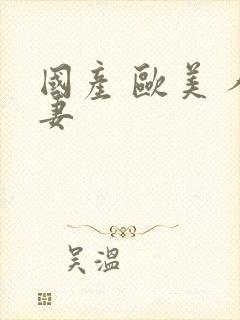 國產 歐美 人
妻
吴溫